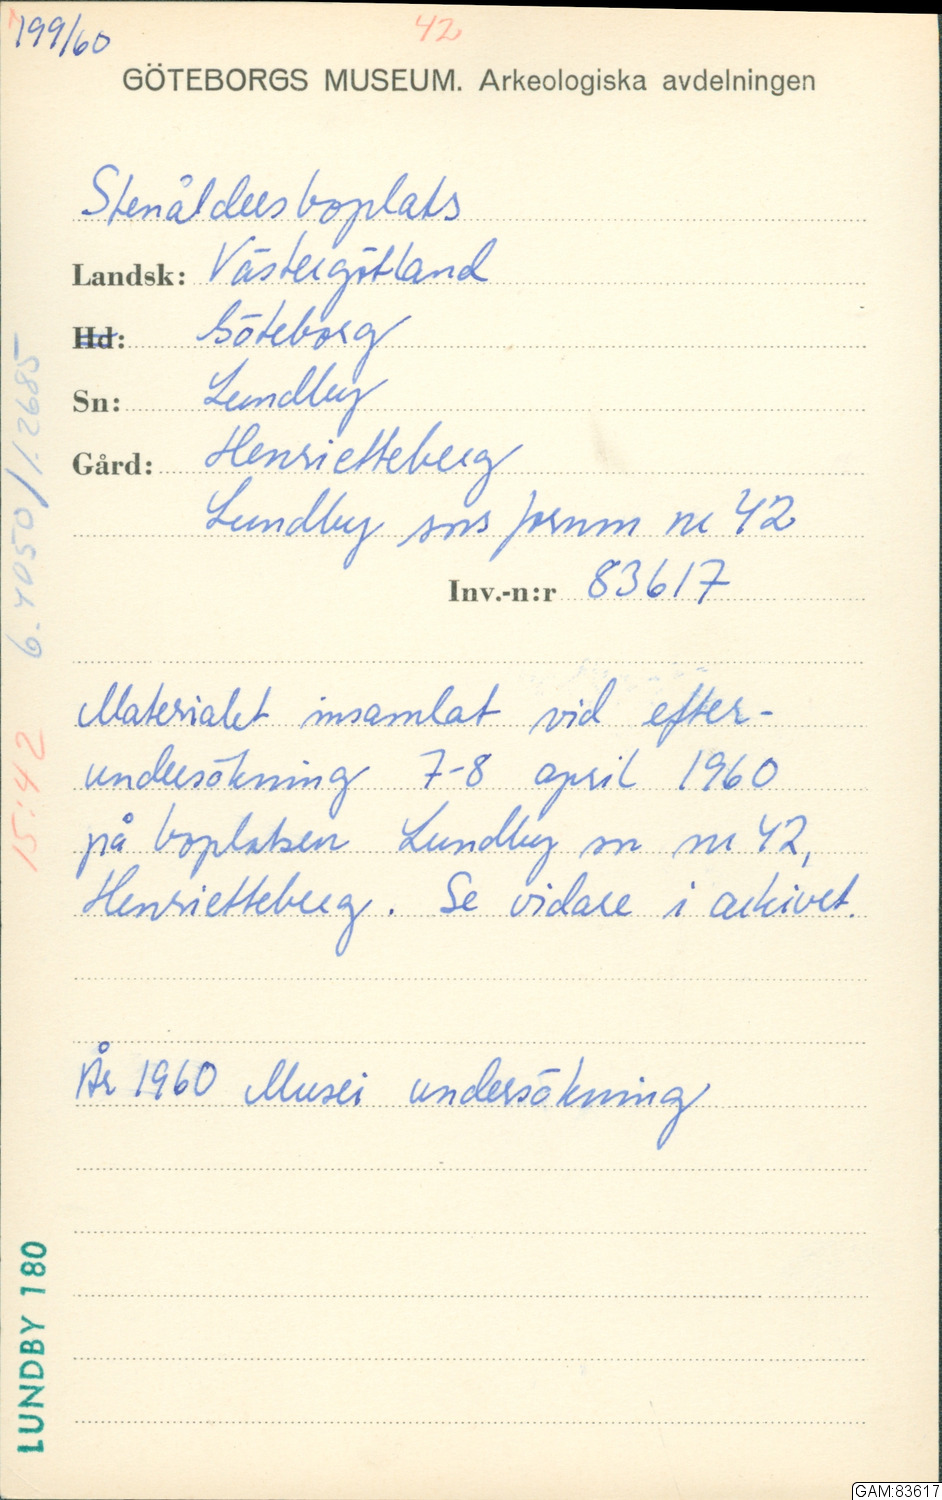 199/60
42
GÖTEBORGS MUSEUM. Arkeologiska avdelningen
Stenåldersboplats
Landsk: Västergötland
Hd: Göteborg
Sn: Lundby
Gård: Henrietteberg
Lundby sns fornm nr 42
Inv.-n:r 83617
Materialet insamlat vid efter-
undersökning 7-8 april 1960
på boplatsen Lundby sn nr 42,
Henrietteberg. Se vidare i arkivet.
År 1960 Musei undersökning
15:42 6.4050/1.2685
LUNDBY 180
GAM:83617